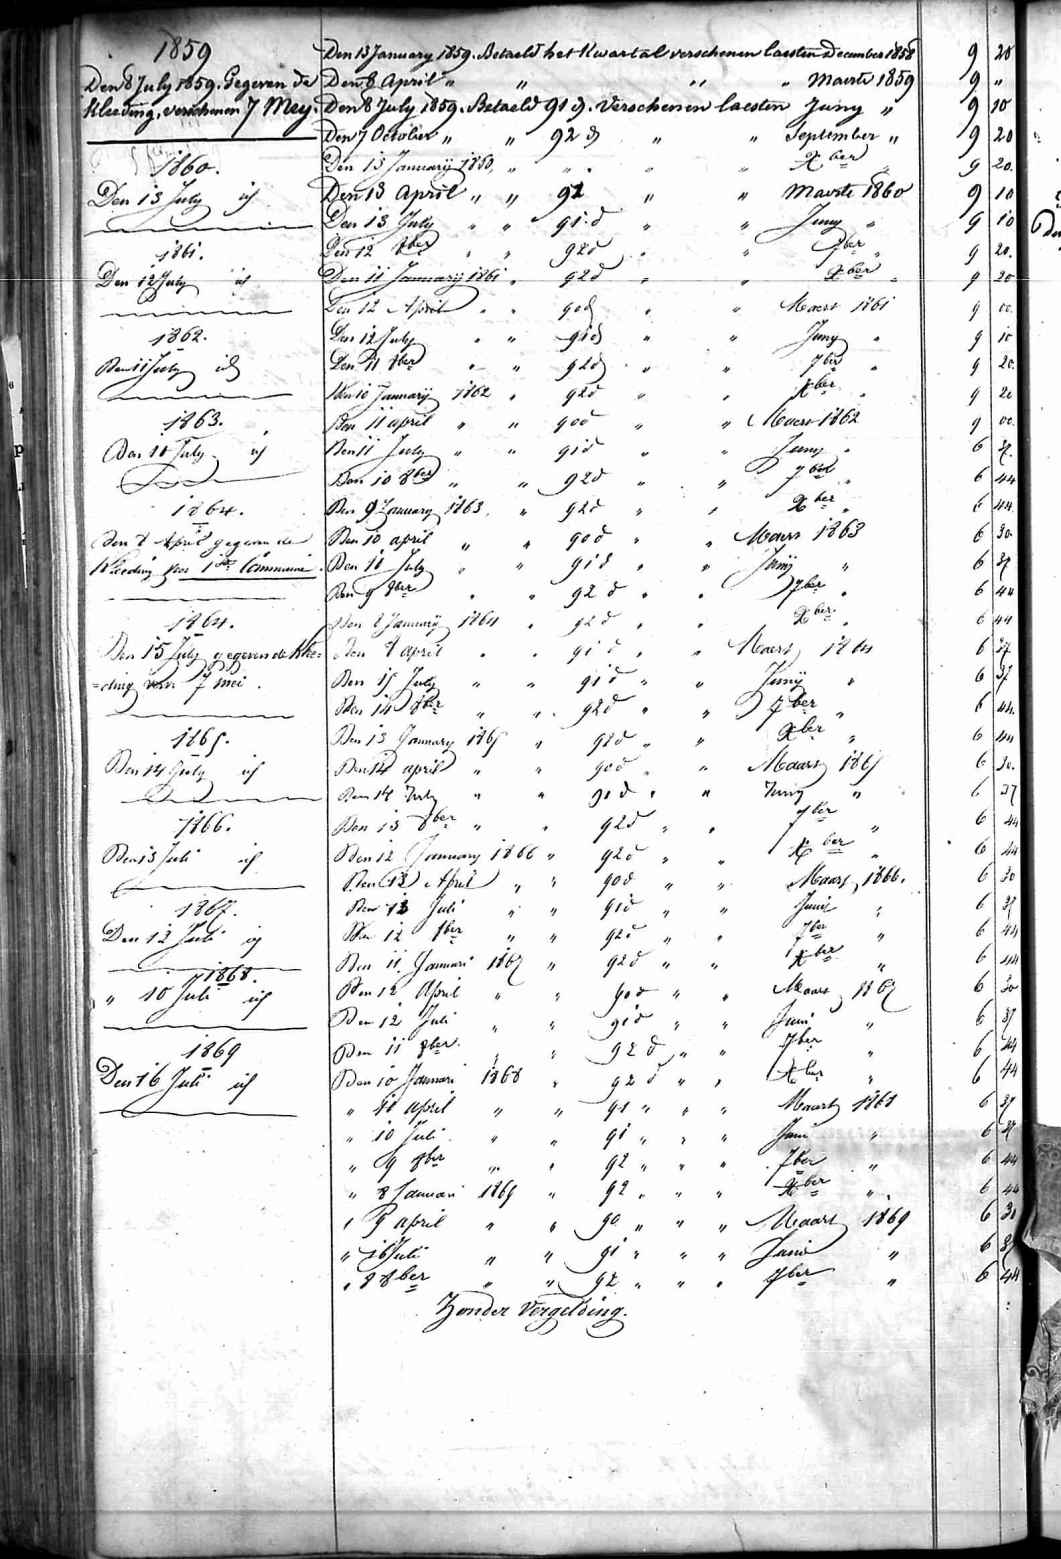 1859
Den 8 July 1859. Gegeven de
Kleeding, verschenen 7 Mey.
1860.
Den 13 July id
1861.
Den 12 July id
1862.
Den 11 July id
1863.
Den 10 July id
1864.
Den 8 April gegeven de
Kleeding voor 1ste Communie.
1864.
Den 15 July gegeven de Klee=
=ding vern 7 mei.
1865.
Den 14 July id
1866.
Den 13 Juli id
1867.
Den 12 Juli id
1868.
" 10 Juli id
1869
Den 16 Juli id
Den 13 January 1859. Betaeld het Kwartal verschenen laesten December 1858 9 20
Den 8 April " " " " Maerte 1859 9 "
Den 8 July 1859. Betaeld 91 d. verschenen laesten Juny " 9 10
Den 7 October " " 92 d " " September " 9 20
Den 13 January 1860, " " " " Xber " 9 20.
Den 13 April " " 91 " " Maerte 1860 9 10
Den 13 July " " 91 d " " Juny " 9 10
Den 12 8ber " " 92 d " " 7ber " 9 20.
Den 11 January 1861 " 92 d " " Xber " 9 20
Den 12 April " " 90 d " " Maert 1861 9 00
Den 12 July " " 91 d " " Juny " 9 10
Den 11 8ber " " 92 d " " 7ber " 9 20.
Den 10 January 1862 " 92 d " " Xber " 9 20
Den 11 april " " 90 d " " Maert 1862 9 00.
Den 11 July " " 91 d " " Juny " 6 37.
Den 10 8ber " " 92 d " " 7ber " 6 44
Den 9 January 1863 " 92 d " " Xber " 6 44.
Den 10 april " " 90 d " " Maers 1863 6 30.
Den 10 July " " 91 d " " Junij " 6 37
Den 9 8ber " " 92 d " " 7ber " 6 44
Den 8 January 1864 " 92 d " " Xber " 6 44
Den 8 april " " 91 d " " Maers 1864 6 37.
Den 15 July " " 91 d " " Junij " 6 37
Den 14 8ber " " 92 d " " 7ber " 6 44.
Den 13 January 1865 " 92 d " " Xber " 6 44
Den 14 april " " 90 d " " Maars 1865 6 30.
Den 14 July " " 91 d " " Juny " 6 37
Den 13 8ber " " 92 d " " 7ber " 6 44
Den 12 January 1866 " 92 d " " Xber " 6 44
Den 13 April " " 90 d " " Maars 1866. 6 30
Den 13 Juli " " 91 d " " Junij " 6 37
Den 12 8ber " " 92 d " " 7ber " 6 44
Den 11 Januari 1867 " 92 d " " Xber " 6 44
Den 12 April " " 90 d " " Maars 1867 6 30
Den 12 Juli " " 91 d " " Juni " 6 37
Den 11 8ber " " 92 d " " 7ber " 6 44
Den 10 Januari 1868 " 92 d " " Xber " 6 44
" 10 april " " 91 " " " Maart 1868 6 37
" 10 Juli " " 91 " " " Juni " 6 37
" 9 8ber " " 92 " " " 7ber " 6 44
" 8 Januari 1869 " 92 " " " Xber " 6 44
" 9 april " " 90 " " " Maart 1869 6 30
" 16 Juli " " 91 " " " Junie " 6 37
" 8 8ber " " 92 " " " 7ber " 6 44
Zonder Vergelding.